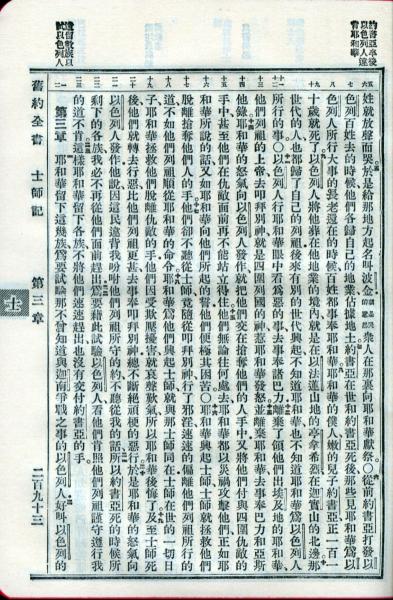 約書亞卒後
以色列人違
背耶和華
遺留敵族以
試以色列人
姓就放聲而哭於是給那地方起名叫波金衆人在那裏向耶和華獻祭○從前約書亞打發以
色列百姓去的時候他們各歸自己的地業佔據地土約書亞在世和約書亞死後那些見耶和華爲以
色列人所行大事的長老還在的時候百姓都事奉耶和華耶和華的僕人嫩的兒子約書亞正一百一
十歲就死了以色列人將他葬在他地業的境內就是在以法蓮山地的亭拿希烈在迦實山的北邊那
世代的人也都歸了自己的列祖後來有別的世代興起不知道耶和華也不知道耶和華爲以色列人
所行的事○以色列人行耶和華眼中看爲惡的事去事奉諸巴力離棄了領他們出埃及地的耶和華
他們列祖的上帝去叩拜別神就是四圍列國的神惹耶和華發怒並離棄耶和華去事奉巴力和亞斯
他錄耶和華的怒氣向以色列人發作就把他們交在搶奪他們的人手中又將他們付與四圍仇敵的
手中甚至他們在仇敵面前再不能站立得住他們無論往何處去耶和華都以災禍攻擊他們正如耶
和華所說的話又如耶和華向他們所起的誓他們便極其困苦○耶和華興起士師士師就拯救他們
脫離搶奪他們人的手他們卻不聽從士師竟隨從叩拜別神行了邪淫速速的偏離他們列祖所行的
道不如他們列祖順從耶和華的命令耶和華爲他們興起士師就與那士師同在士師在世的一切日
子耶和華拯救他們脫離仇敵的手他們因受欺壓擾害就哀聲歎氣所以耶和華後悔了及至士師死
後他們就轉去行惡比他們列祖更甚去事奉叩拜別神總不斷絕頑梗的惡行於是耶和華的怒氣向
以色列人發作他說因這民違背我吩咐他們列祖所守的約不聽從我的話所以約書亞死的時候所
剩下的各族我必不再從他們面前趕出爲要藉此試驗以色列人看他們肯照他們列祖謹守遵行我
的道不肯這樣耶和華留下各族不將他們速速趕出也沒有交付約書亞的手
第三章 耶和華留下這幾族爲要試驗那不曾知道與迦南爭戰之事的以色列人好叫以色列的
舊約全書 士師記 第三章 二百九十三
士